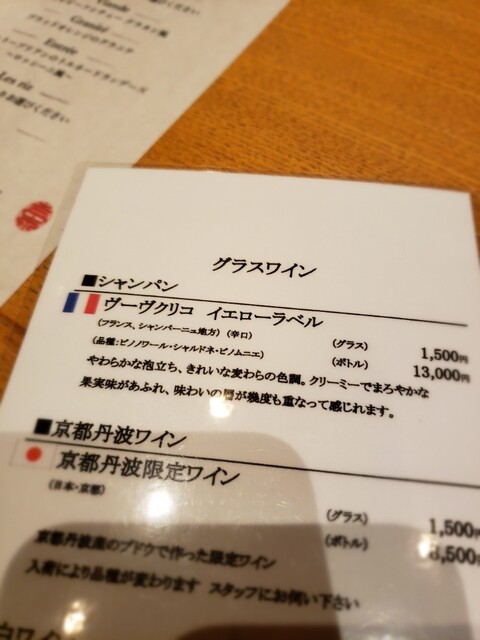 Viande
Granité
Entrée
お選びください
グラスワイン
■シャンパン
ヴーヴクリコ イエローラベル
(フランス、シャンパーニュ地方) (辛口) (グラス) 1,500円
(品種:ピノノワール・シャルドネ・ピノムニエ) (ボトル) 13,000円
やわらかな泡立ち、きれいな麦わらの色調。クリーミーでまろやかな
果実味があふれ、味わいの層が幾度も重なって感じれます。
■京都丹波ワイン
京都丹波限定ワイン
(日本・京都)
(グラス) 1,500円
京都丹波産のブドウで作った限定ワイン (ボトル) ,500円
入荷により品種が変わります スタッフにお伺い下さい
白ワイ